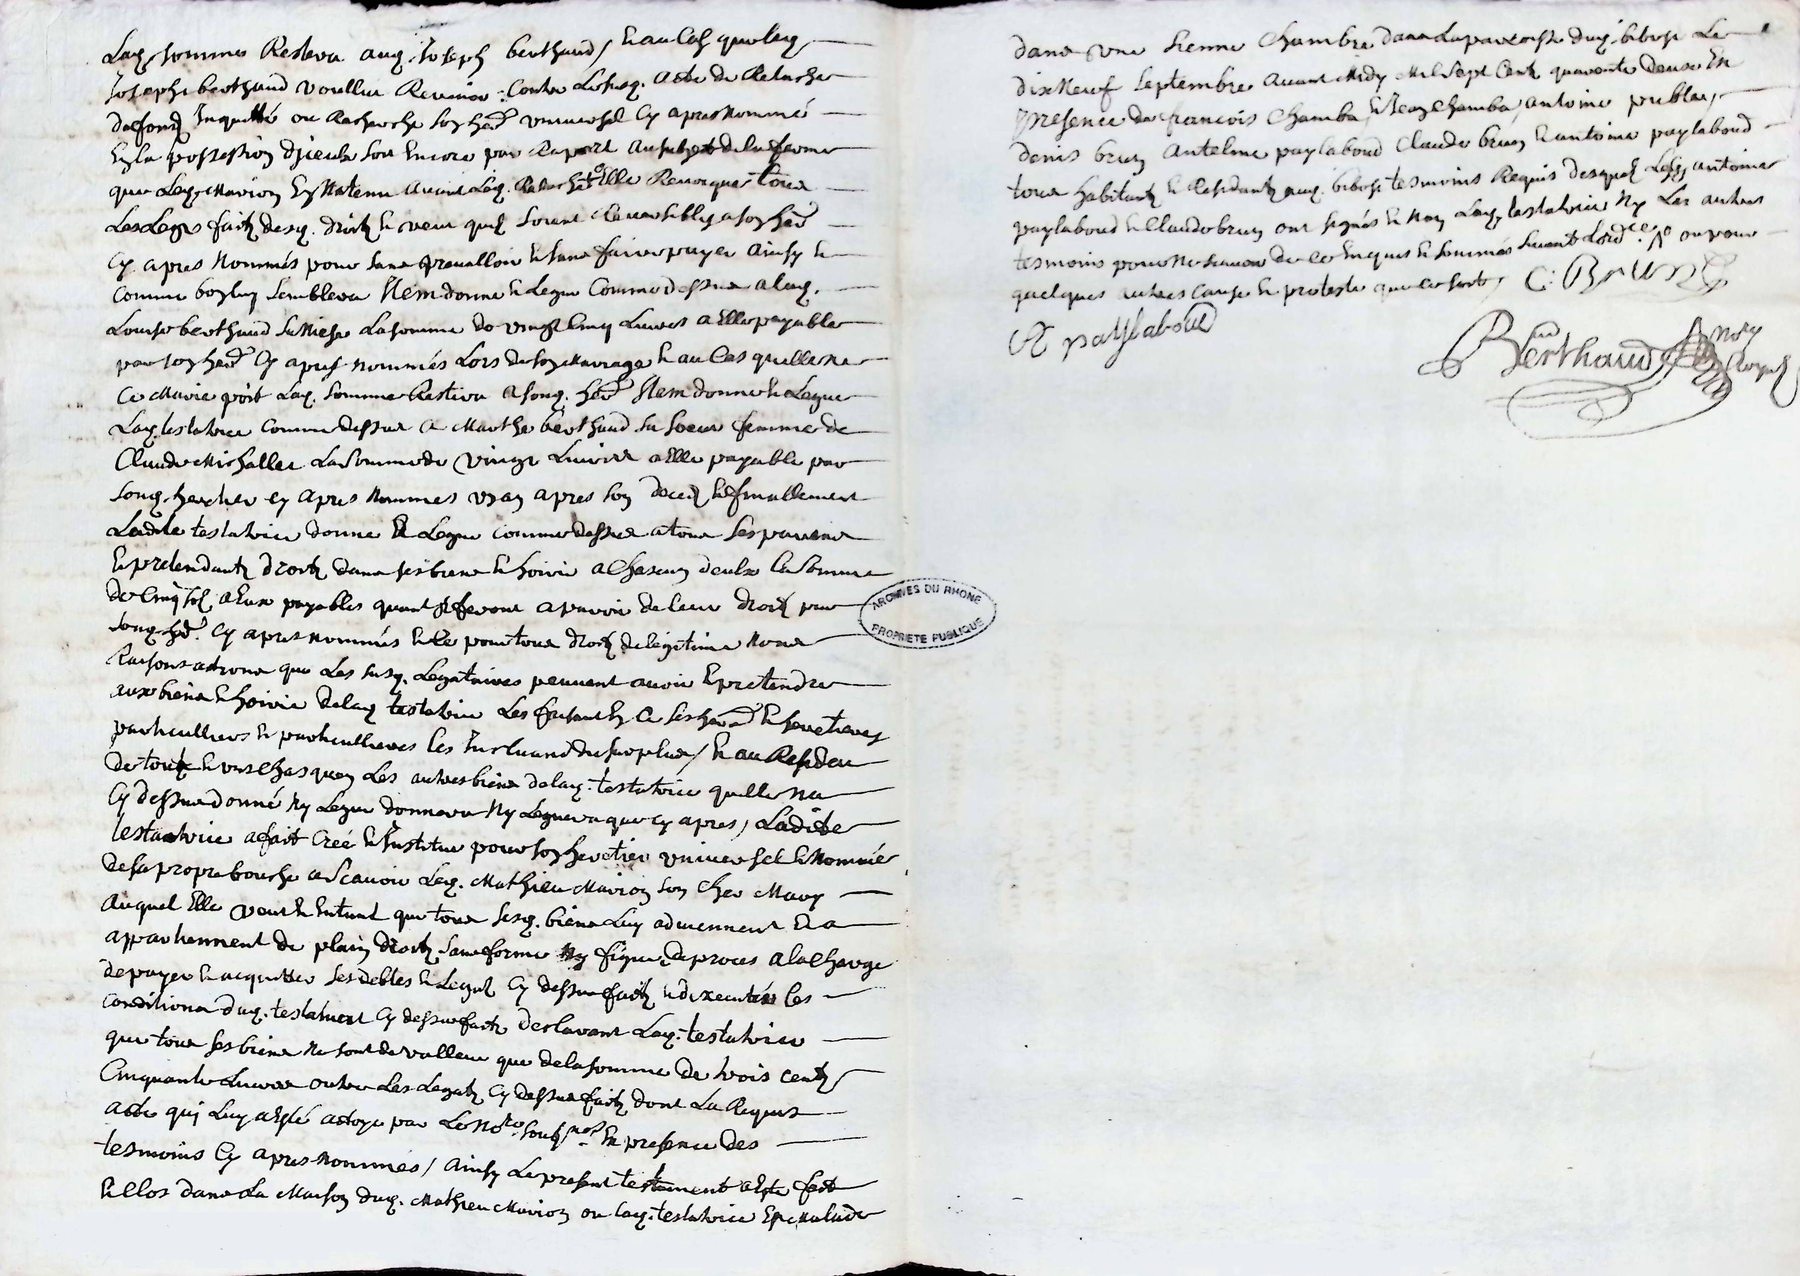 Laq. somme Restera auq. Joseph berthaud / Et au Cas que leq.
Joseph berthaud voullut Revenir Contre Lesusq. acte de Relache
de fond Inquetté ou Recherche son hed. universel Cy apres nommé
En la possession d'jceux soit Encore par Raport au subjet de la ferme
que Leq. Marion En Retenu avant Leq. Relache Elle Revoque tous
Les Legs faits desq. droits Et veut quils soient Reversibles a son hed.
Cy apres Nommés pour sans prevalloir Et sans faire payer ainsy Et
Comme bon luy semblera Item donne Et Legue Comme dessus a laq.
Louise berthaud sa Niese La somme de vingt Cinq Livres a Elle payable
par son hed. Cy apres nommés Lors de son Mariage Et au Cas quelle ne
Ce Marie point Laq. somme Restera a sonq. hed. Item donne Et Legue
Laq. testatrice comme dessus a Marthe berthaud sa soeur femme de
Claude Michallet La somme de vingt Livres a Elle payable par
sonq. heritier cy apres Nommes un an apres son deced Et finallement
Ladite testatrice donne Et Legue comme dessus a tous ses parens
Et pretendants droits dans ses biens Et hoirie a Chascun d'eulx la somme
de Cinq sols a Eux payables quant Ils feront aparoir de leur droits par
sonq. hed. Cy apres nommés Et Ce pour tous droits de legitime Noms
Raisons actions que Les susq. Legataires peuvent avoir Et pretendre
aux biens Et hoirie de laq. testatrice Les faisant En Ce ses heritiers Et heretieres
particulliers Et particullieres les Excluand du surplus / Et au Residu
de touts Et uns Chasquns Les autres biens de laq. testatrice quelle na
Cy dessus donné Ny Legue donnera Ny Leguera que Cy apres / Ladite
testatrice a fait Créé Et Institue pour son heretier universel Et Nommé
de sa propre bouche a Scavoir Leq. Mathieu Marion son Cher Mary
auquel Elle veut Et Entent que tous sesq. biens Luy adviennent Et a
appartiennent de plain droits sans forme Ny figure de proces a la Charge
de payer Et acquitter ses debtes Et Legats Cy dessus faits Et d'executer les
conditions duq. testament Cy dessus faits declarant Laq. testatrice
que tous ses biens Ne sont de valleur que de la somme de trois cents
Cinquante Livres outre Les Legats Cy dessus faits dont La Requis
acte qui Luy a Esté actoye par Le Nore. soubsné. En presence des
tesmoins Cy apres Nommés / ainsy Le present testament a Esté fait
Et Clos dans La Maison duq. Mathieu Marion ou laq. testatrice Est Malade
dans une sienne Chambre dans La parroisse duq. bibost Le
dix Neuf septembre avant Midy Mil sept Cents quarente deux En
presence de francois Chamba, Et Jean Chamba, antoine
denis brun antelme paylaboud Claude brun Et antoine paylaboud
tous habitants Et Residants auq. bibost tesmoins Requis desquels Lesq. antoine
paylaboud Et Claude brun ont signés Et Non Laq. testatrice Ny Les autres
tesmoins pour Ne scavoir de ce Enquis Et sommés suivant L'ordce. Ro. ou pour
quelques autres Cause Et proteste que ce soit /
C. BRUN
A paylaboud
Berthaud Nore Royal
ARCHIVES DU RHONE
PROPRIETE PUBLIQUE